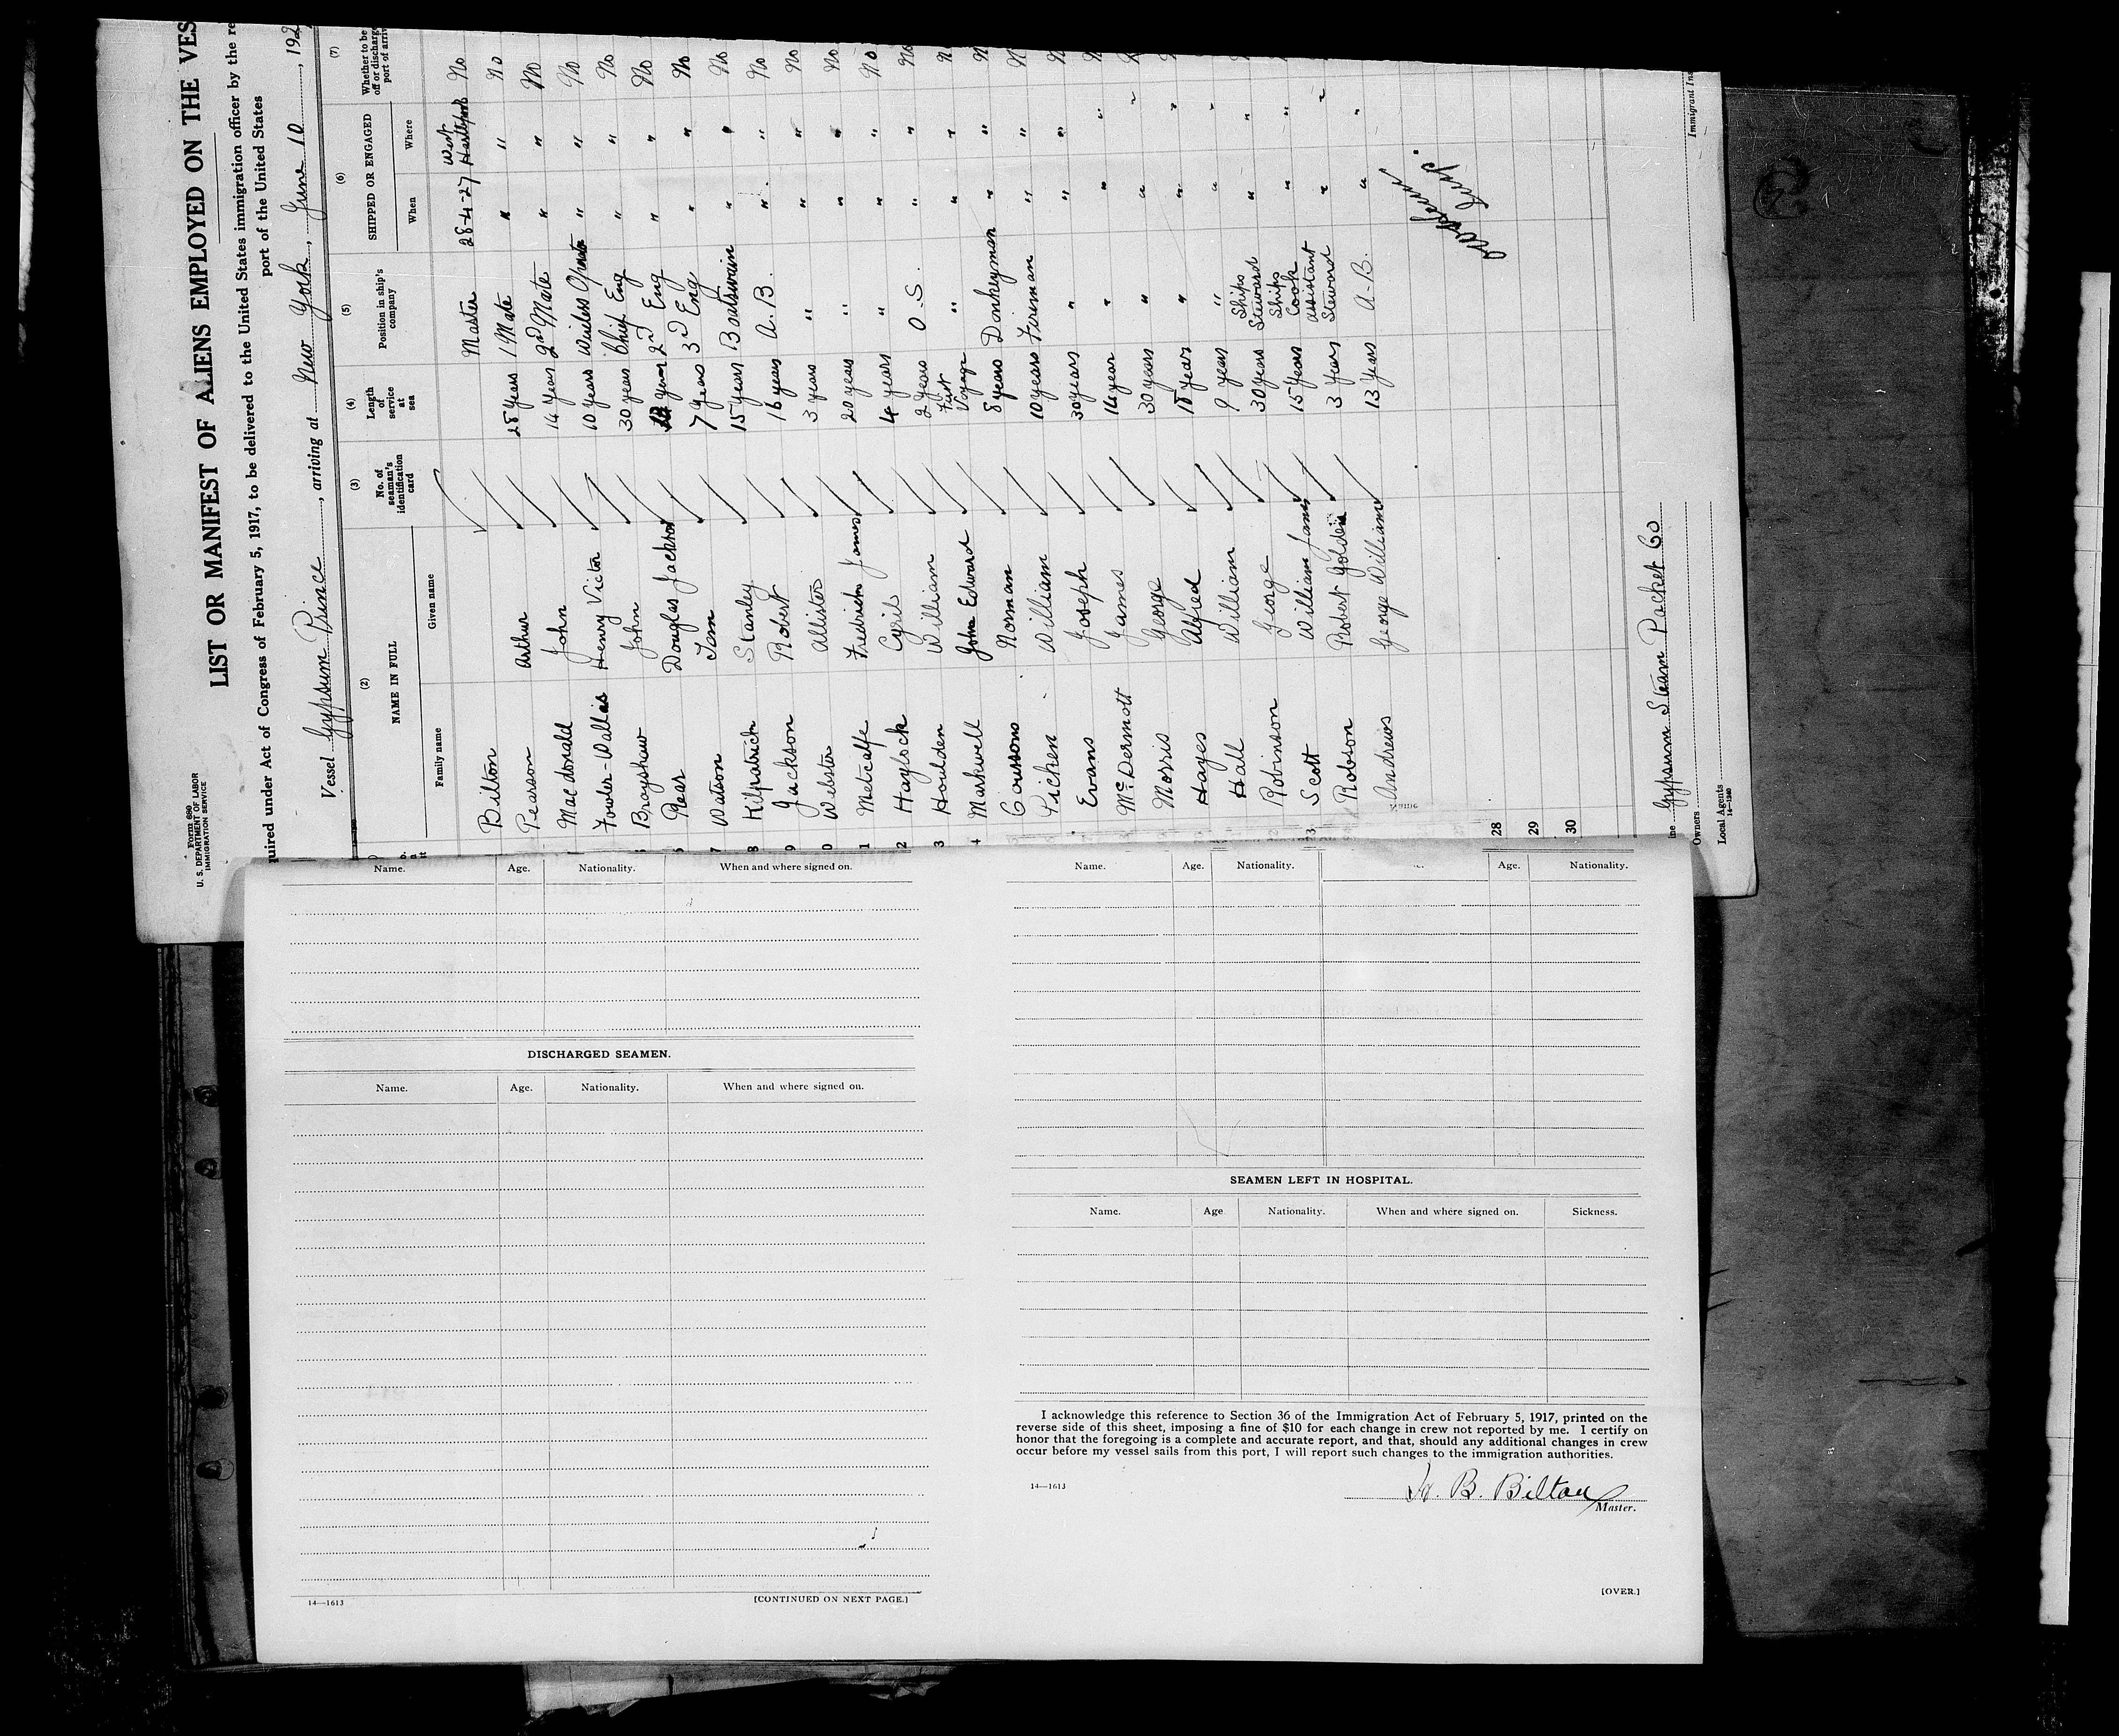 Form 680
U. S. DEPARTMENT OF LABOR
IMMIGRATION SERVICE
LIST OR MANIFEST OF ALIENS EMPLOYED ON THE VES
quired under Act of Congress of February 5, 1917, to be delivered to the United States immigration officer by the re
port of the United States
Vessel Gypsum Prince, arriving at New York, June 10, 192
(2) (3) (4) (5) (6) (7)
NAME IN FULL No. of seaman's identification card Length of service at sea Position in ship's company SHIPPED OR ENGAGED Whether to be
off or discharge
port of arriv
Family name Given name When Where
Bilton Master 28-4-27 West Hartlepool No
Pearson Arthur 28 years 1 Mate " " No
Macdonald John 14 years 2nd Mate " " No
Fowler-Wallis Henry Victor 10 years Wireless Operator " " No
Brayshaw John 30 years Chief Eng " " No
6 Rear Douglas Jackson years 2nd Eng " " No
7 Watson Tom 7 years 3rd Eng " " No
8 Kilpatrick Stanley 15 years Boatswain " " No
9 Jackson Robert 16 years A.B. " " No
0 Webster Allister 3 years " " " No
1 Metcalfe Fredrick James 20 years " " " No
2 Haylock Cyril 4 years " " " No
3 Houlden William 2 years O.S. " " No
4 Markwell John Edward First Voyage " " " N
Coussons Norman 8 years Donkeyman " " N
Picken William 10 years Fireman " " N
Evans Joseph 30 years " " " N
McDermott James 14 year " " " N
Morris George 30 years " " " N
Hayes Alfred 18 years " " " N
Hall William 9 years " " "
Robinson George 30 years Ships Steward " "
Scott William James 15 years Ships Cook " "
Robson Robert Goldie 3 years assistant Steward " "
Andrews George William 13 years A.B. " "
28
29
30
ine Gypsum Steam Packet Co
Owners
Local Agents
14—1240
Immigrant Ins
Name. Age. Nationality. When and where signed on.
DISCHARGED SEAMEN.
Name. Age. Nationality. When and where signed on.
14—1613 [CONTINUED ON NEXT PAGE.]
Name. Age. Nationality. Age. Nationality.
SEAMEN LEFT IN HOSPITAL.
Name. Age Nationality. When and where signed on. Sickness.
I acknowledge this reference to Section 36 of the Immigration Act of February 5, 1917, printed on the
reverse side of this sheet, imposing a fine of $10 for each change in crew not reported by me. I certify on
honor that the foregoing is a complete and accurate report, and that, should any additional changes in crew
occur before my vessel sails from this port, I will report such changes to the immigration authorities.
14—1613
B. Bilton
Master.
[OVER.]